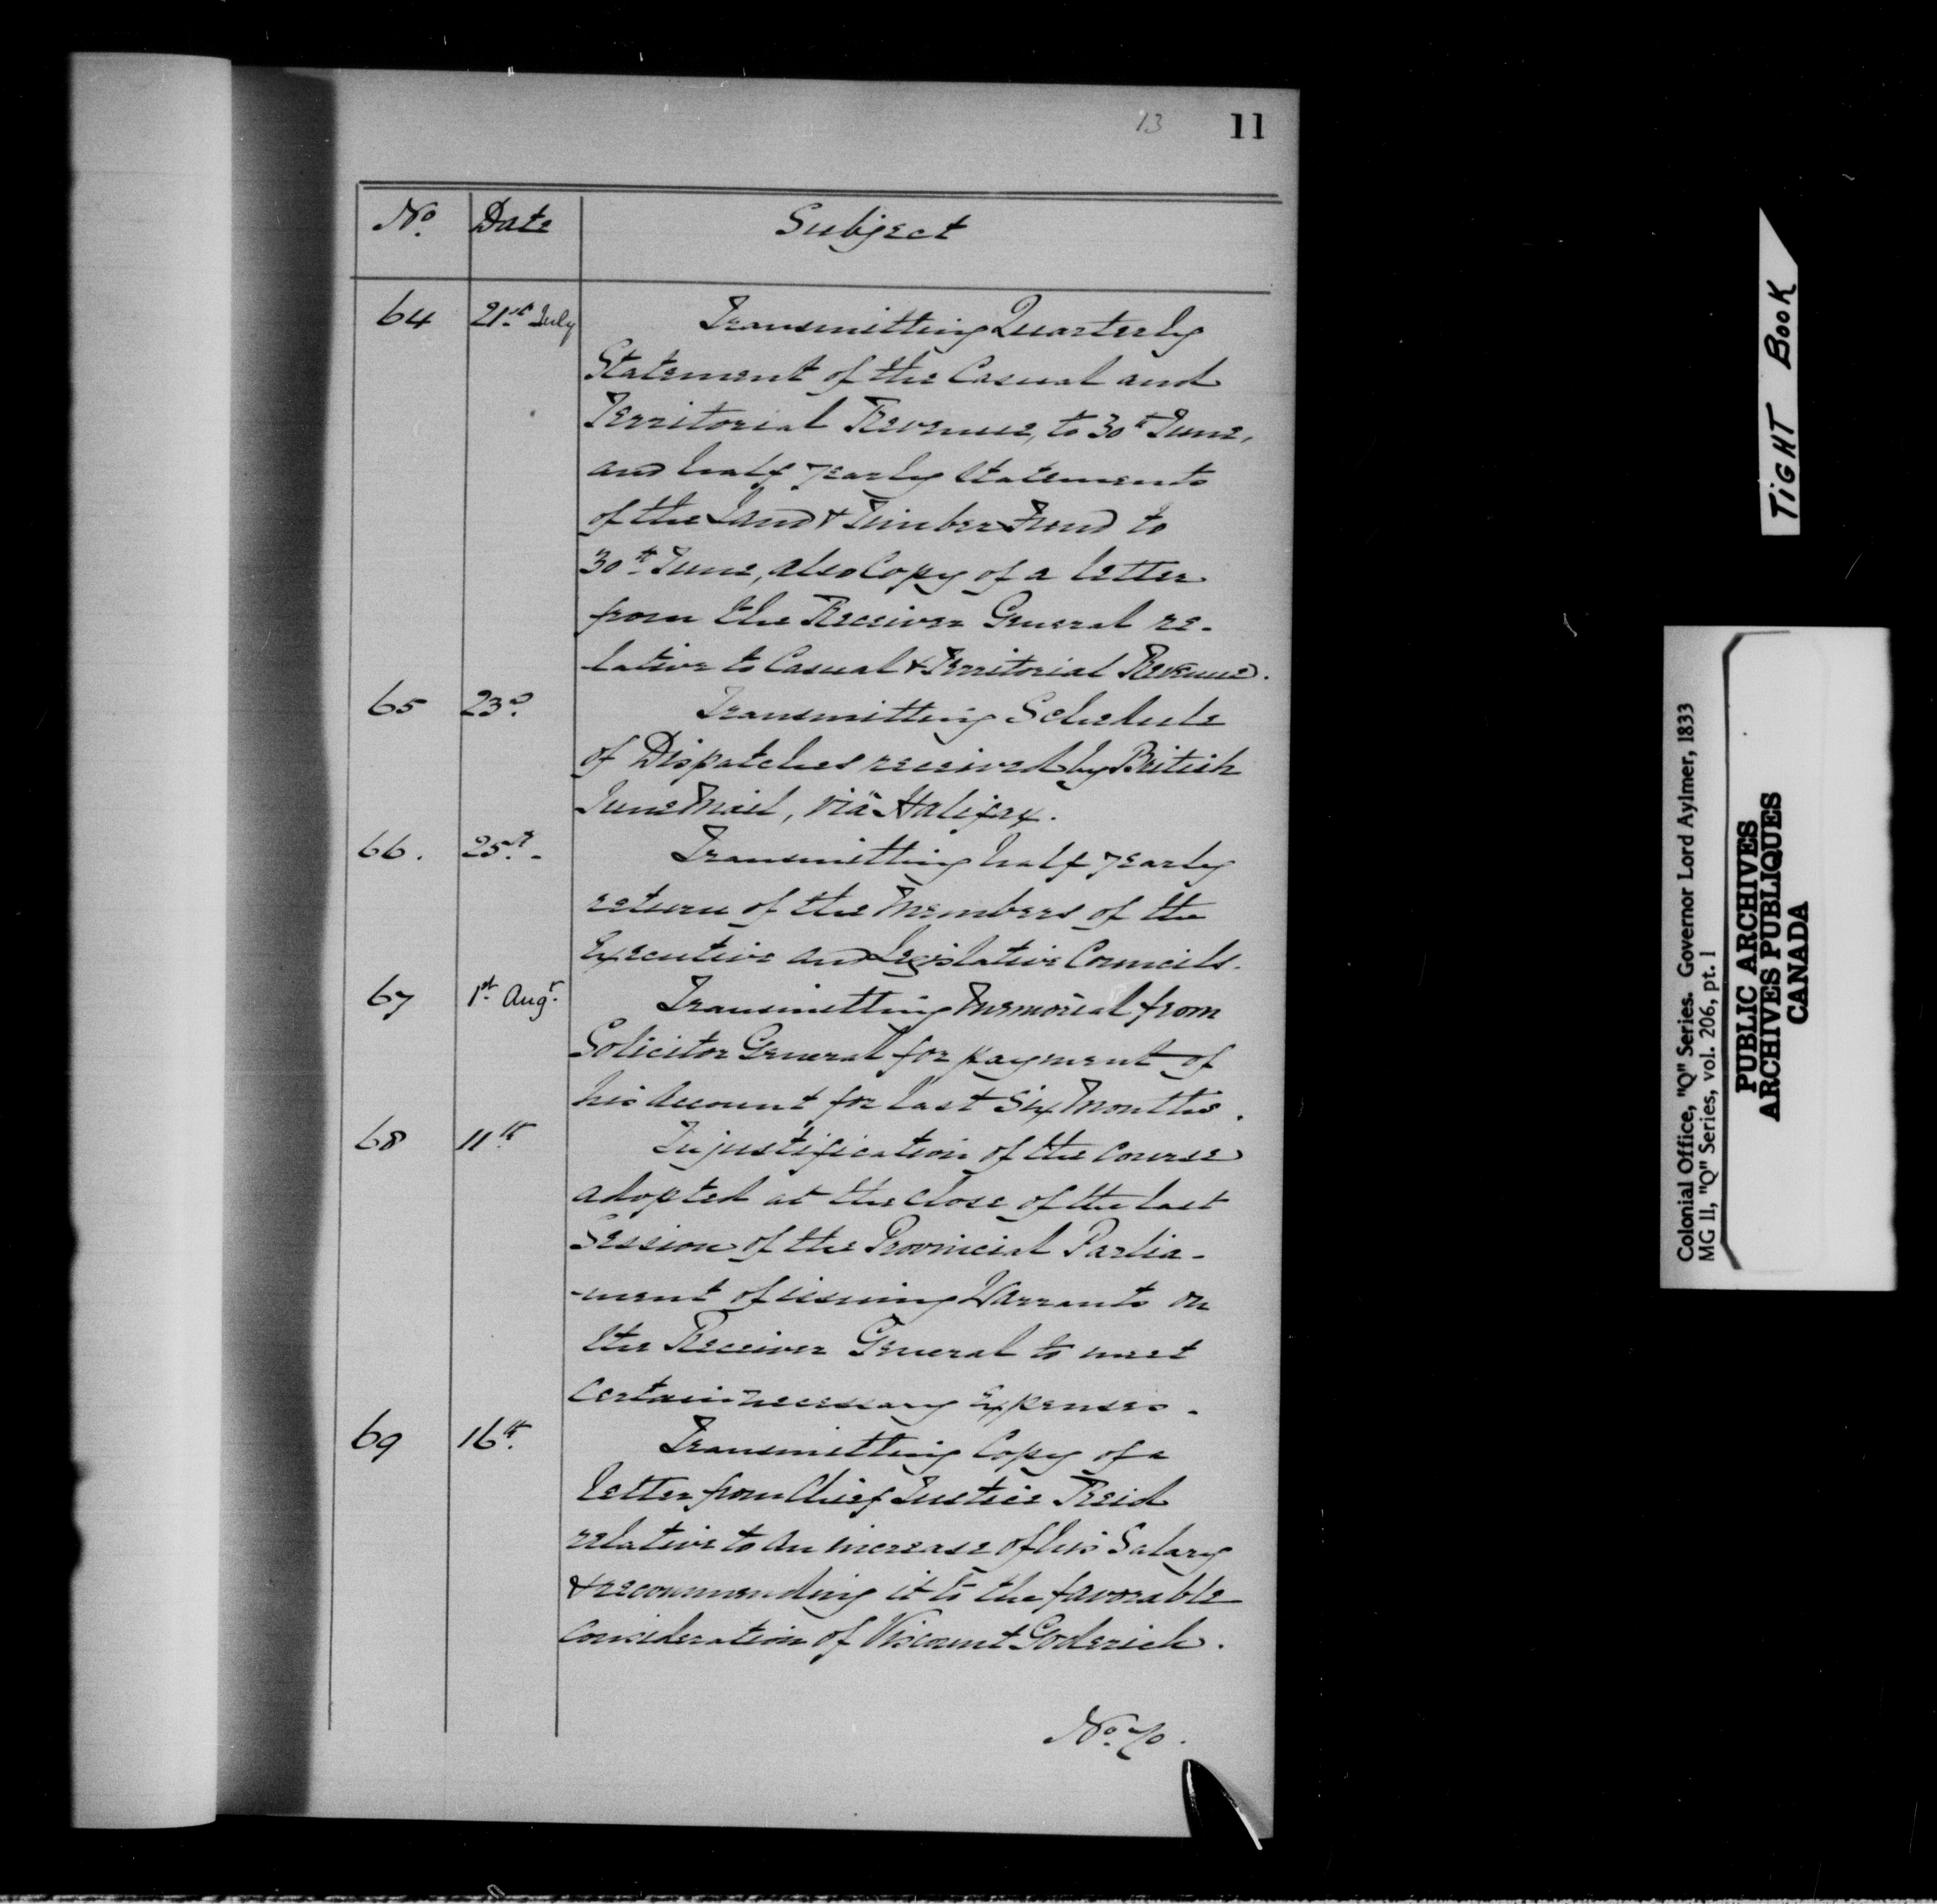 13 11
No. Date Subject
64 21st July Transmitting Quarterly
Statement of the Casual and
Territorial Revenue, to 30th June,
and half yearly Statements
of the Land & Timber Fund to
30th June, also Copy of a letter
from the Receiver General re-
lative to Casual & Territorial Revenue.
65 23d. Transmitting Schedule
of Dispatches received by British
June Mail, via Halifax.
66. 25th.- Transmitting half yearly
return of the Members of the
Executive and Legislative Councils.
67 1st Augt. Transmitting Memorial from
Solicitor General for payment of
his Account for last Six Months.
68 11th In justification of the course
adopted at the close of the last
Session of the Provincial Parlia-
-ment of issuing Warrants on
the Receiver General to meet
certain necessary Expenses.
69 16th. Transmitting Copy of a
letter from Chief Justice Reid
relative to an increase of his Salary
& recommending it to the favorable
Consideration of Viscount Goderich.
No. 70.
TIGHT BOOK
Colonial Office, "Q" Series. Governor Lord Aylmer, 1833
MG 11, "Q" Series, vol. 206, pt. 1
PUBLIC ARCHIVES
ARCHIVES PUBLIQUES
CANADA